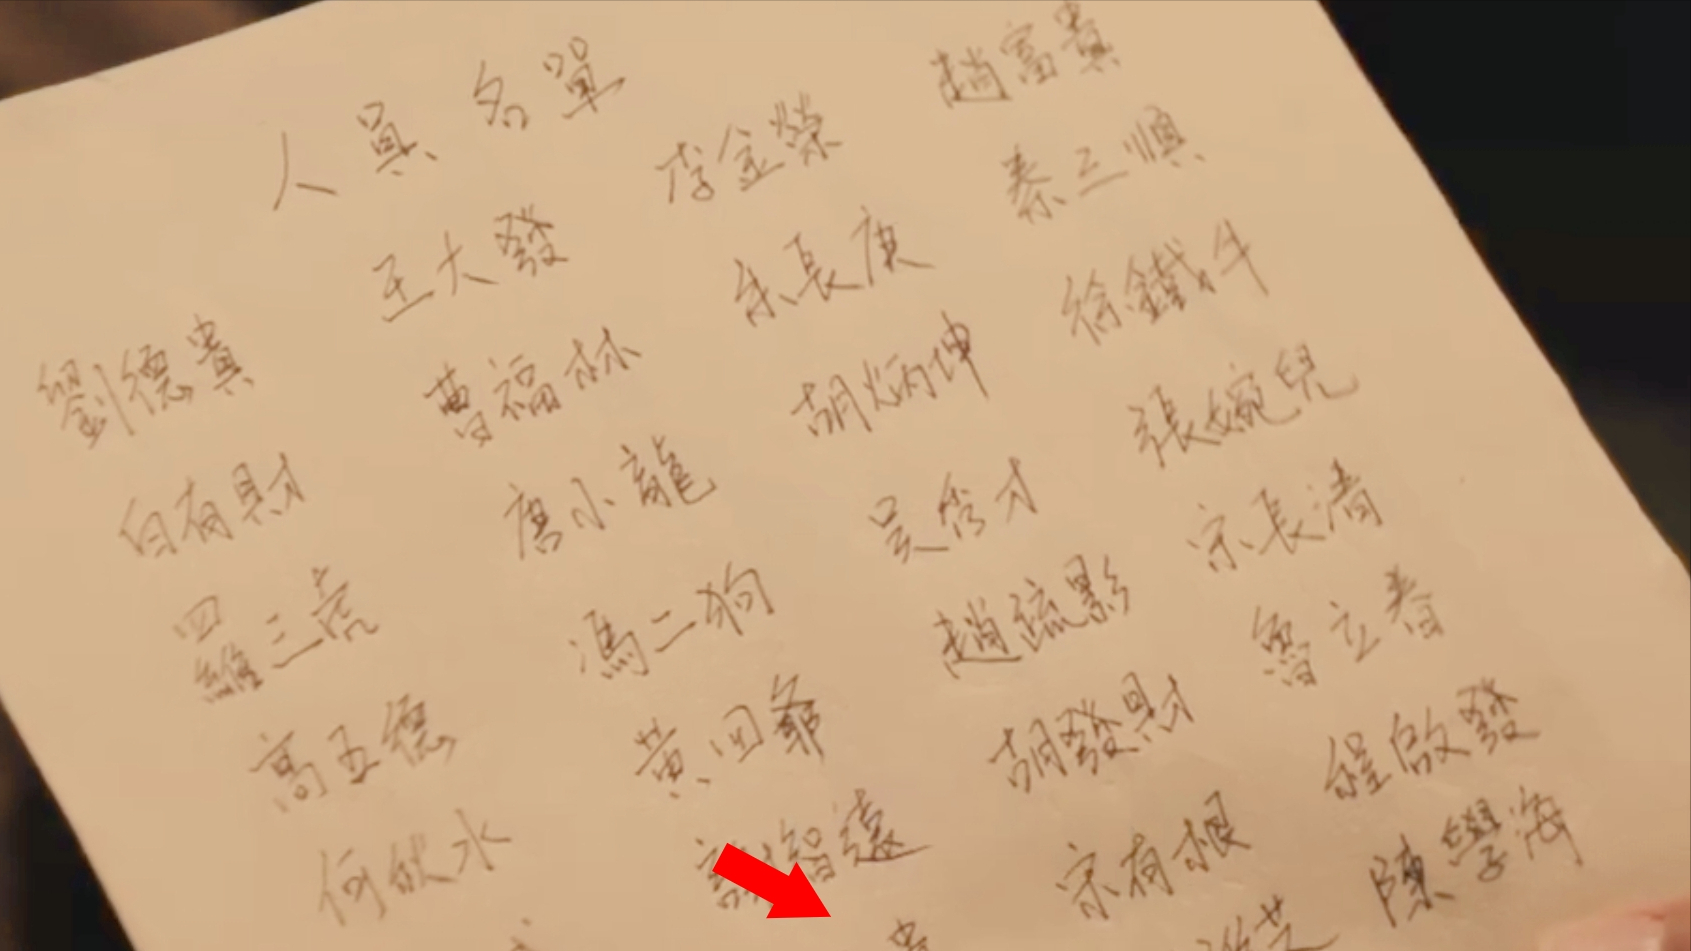 人員名單
劉德貴 王大發 李金榮 趙富貴
白有財 曹福林 余長庚 秦三順
羅三虎 唐小龍 胡炳坤 徐鐵牛
高五德 馮二狗 吳秀才 張婉兒
何 水 黃四爺 趙疏影 宋長清
智遠 胡發財 魯立春
宋有根 程啟發
陳學海